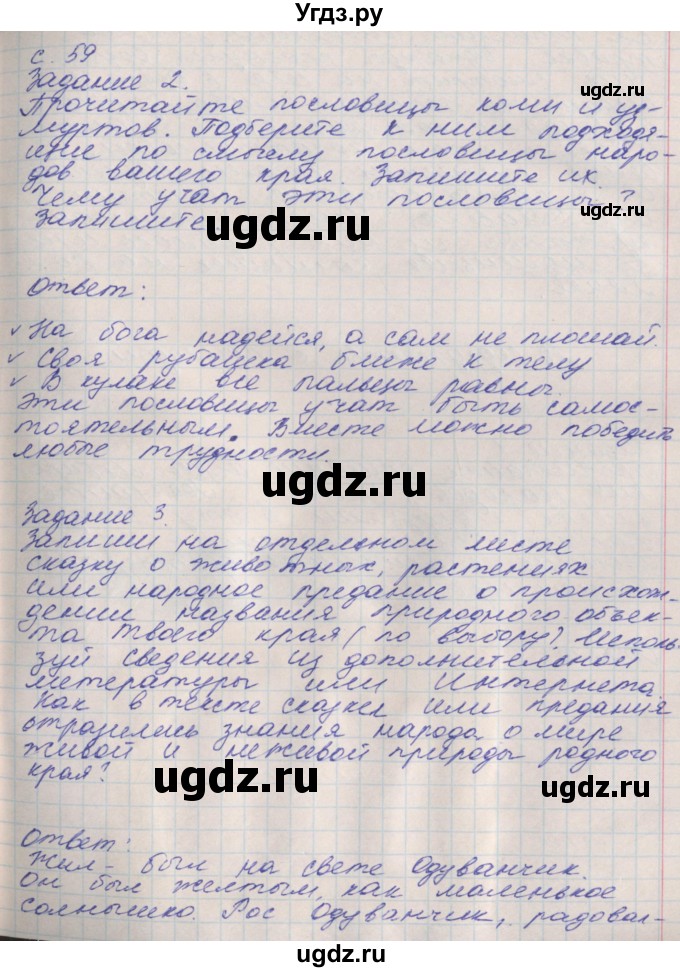 Угдз.ру
с. 59
Задание 2.
Прочитайте пословицы коми и уд-
муртов. Подберите к ним подходя-
щие по смыслу пословицы наро-
дов вашего края. Запишите их.
Чему учат эти пословицы?
Запишите.
ugdz.ru
ugdz.ru
ugdz.ru
Ответ:
✓ На бога надейся, а сам не плошай.
✓ Своя рубашка ближе к телу
✓ В кулаке все пальцы равны.
Эти пословицы учат быть самос-
тоятельным. Вместе можно победить
любые трудности.
ugdz.ru
ugdz.ru
Задание 3.
Запиши на отдельном листе
сказку о животных, растениях
или народное предание о происхож-
дении названия природного объек-
та твоего края (по выбору). Исполь-
зуй сведения из дополнительной
литературы или Интернета.
Как в тексте сказки или предания
отразились знания народа о мире
живой и неживой природы родного
края?
ugdz.ru
ugdz.ru
Ответ:
Жил-был на свете Одуванчик.
Он был желтым, как маленькое
солнышко. Рос Одуванчик, радовал-
ugdz.ru